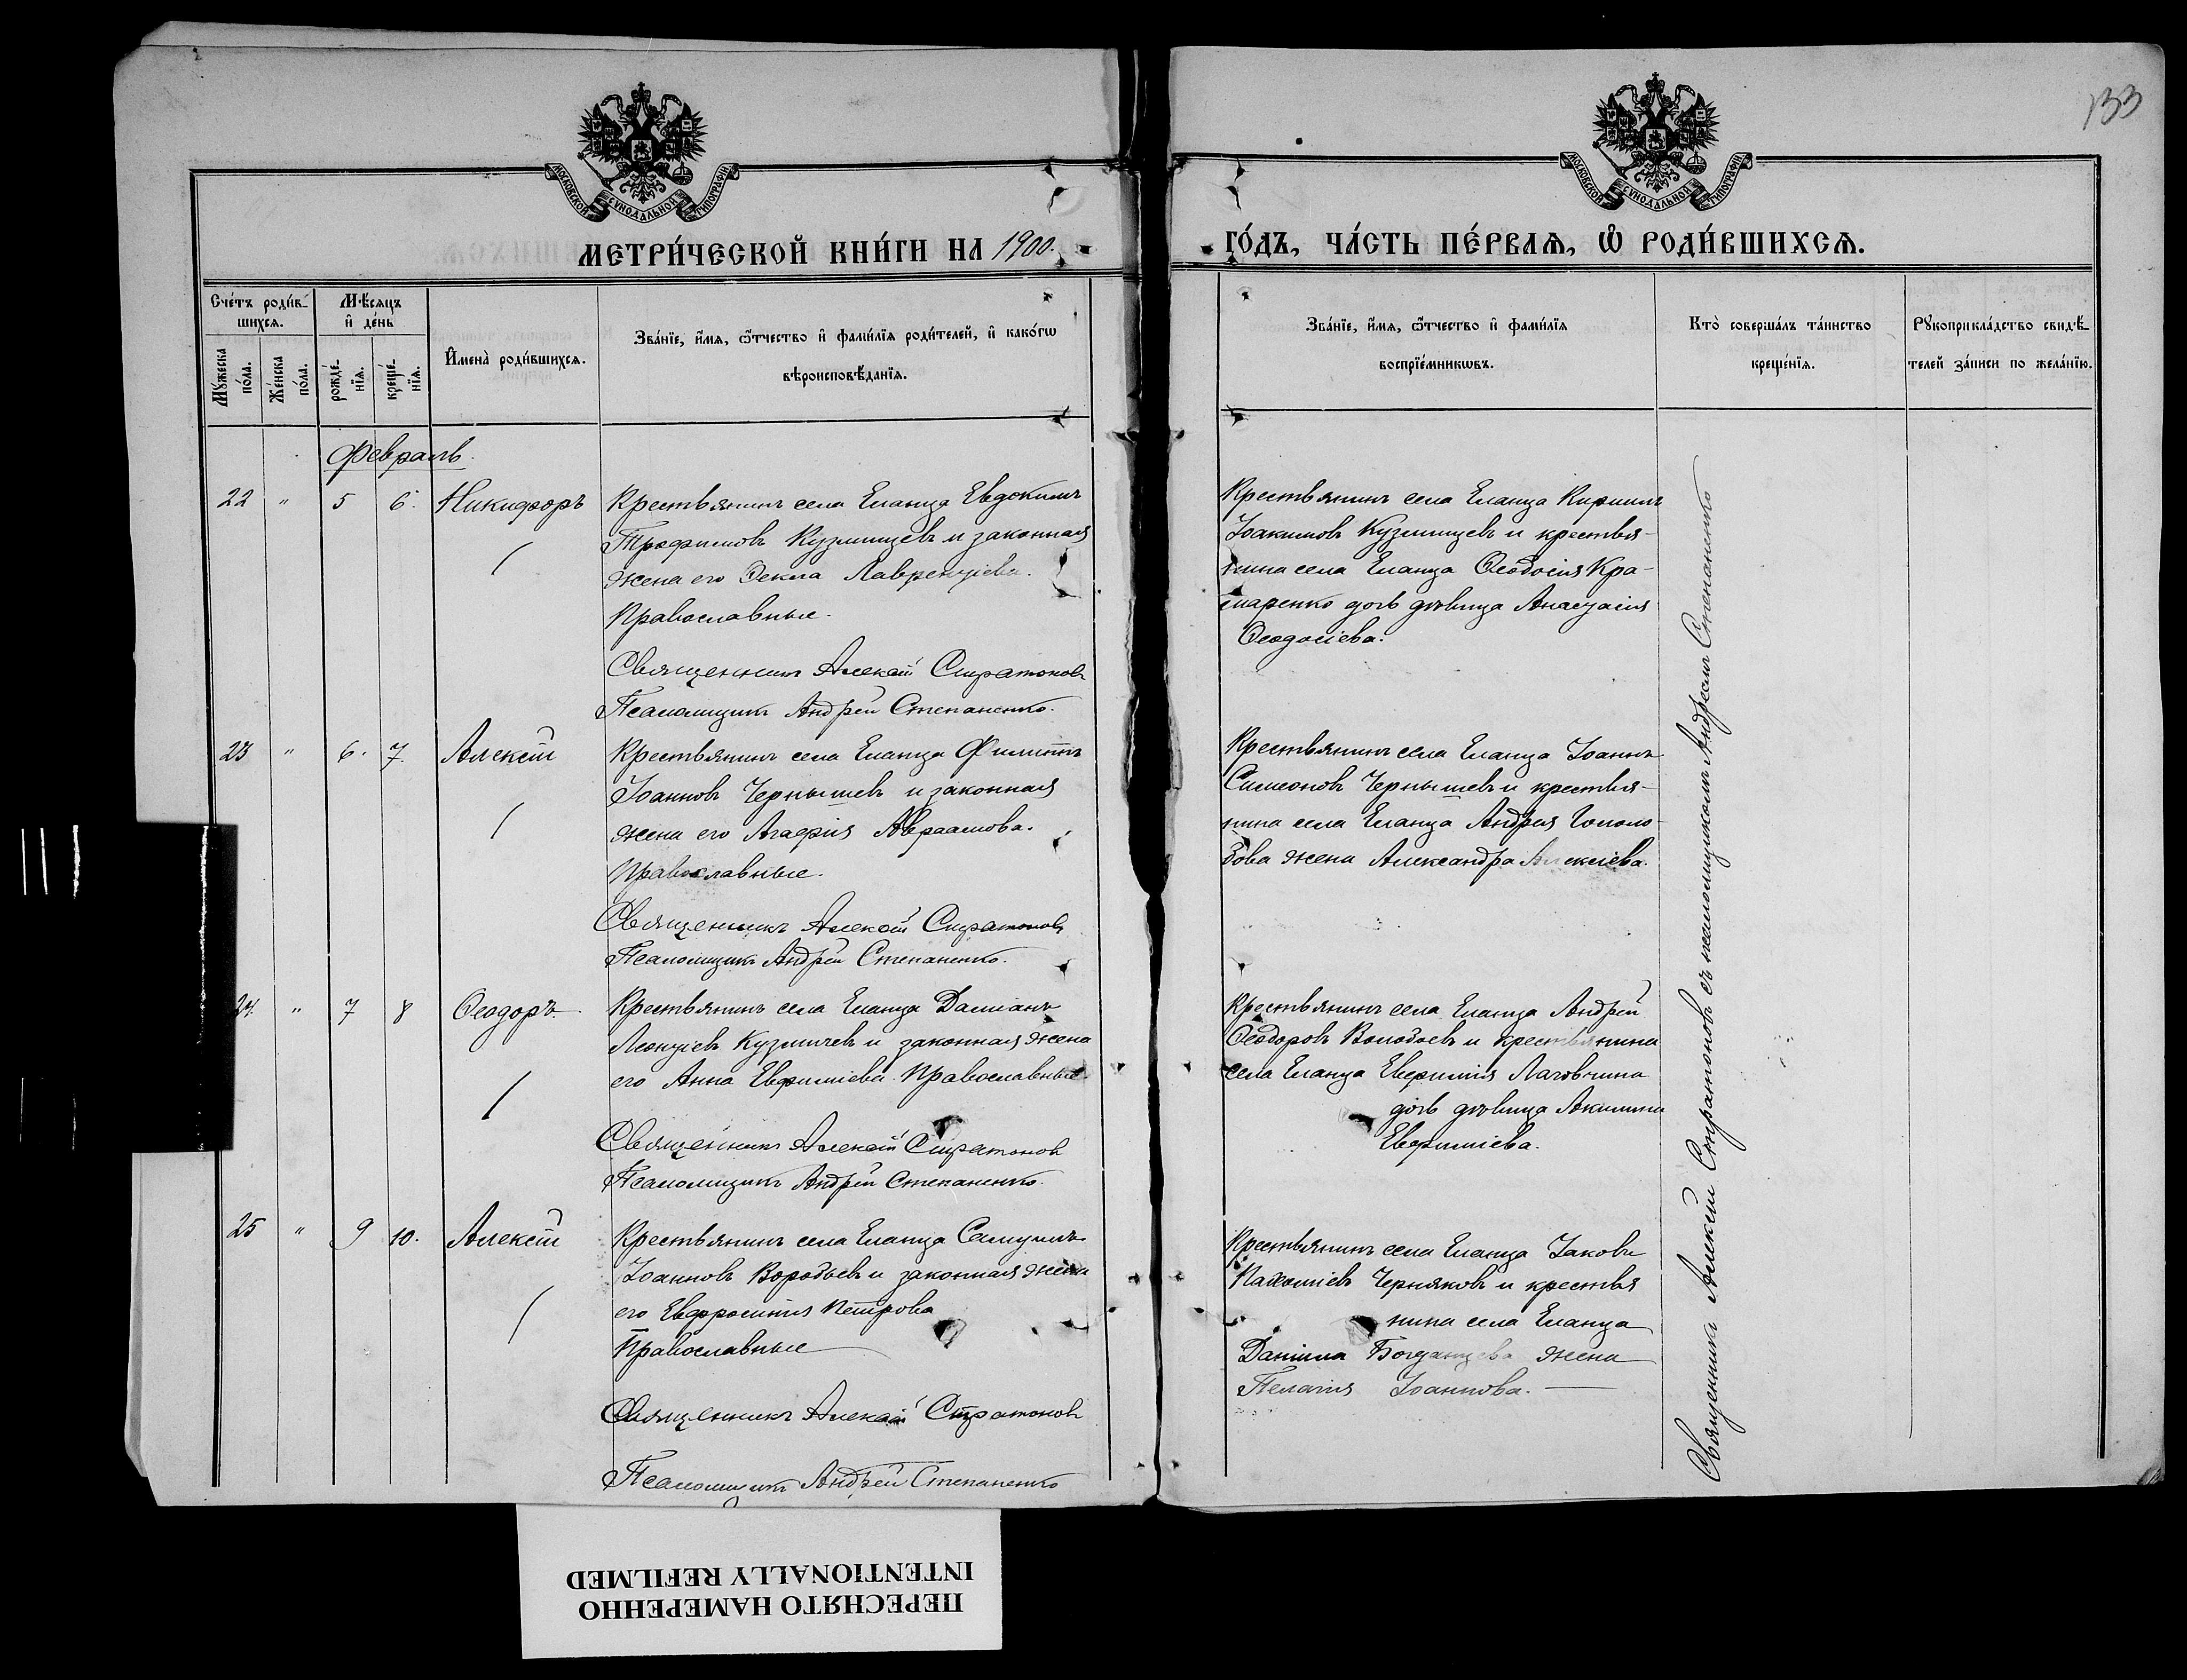 133
МОСКОВСКОЙ СѴНОДАЛЬНОЙ ТИПОГРАФІИ
МОСКОВСКОЙ СѴНОДАЛЬНОЙ ТИПОГРАФІИ
МЕТРИ́ЧЕСКОЙ КНИ́ГИ НА 1900.
ГО́ДЪ, ЧА́СТЬ ПЕ́РВАѦ, Ѽ РОДИ́ВШИХСѦ.
Сче́тъ роди́в-
шихсѧ.
Мꙋ́жеска
по́ла.
Же́нска
по́ла.
Мѣ́сѧцъ
и҆ де́нь
рожде́-
нїѧ.
креще́-
нїѧ.
И҆мена̀ роди́вшихсѧ.
Зва́нїе, и҆́мѧ, ѻ҆́тчество и҆ фами́лїѧ роди́телей, и҆ како́гѡ
вѣроисповѣ́данїѧ.
Зва́нїе, и҆́мѧ, ѻ҆́тчество и҆ фами́лїѧ
воспрїе́мникѡвъ.
Кто̀ соверша́лъ та́инство
креще́нїѧ.
Рꙋкоприкла́дство свидѣ́-
телей за́писи по жела́нїю.
Февраль
22 " 5 6. Никифоръ
Крестьянинъ села Еланца Евдокимъ
Трофимовъ Кузмищевъ и законная
жена его Ѳекла Лаврентіева.
Православные.
Священникъ Алексѣй Стратоновъ
Псаломщикъ Андрей Степаненко.
Крестьянинъ села Еланца Кириллъ
Іоакимовъ Кузмищевъ и крестья-
нина села Еланца Ѳеодосія Кра-
маренко дочь дѣвица Анастасія
Ѳеодосіева.
23 " 6. 7. Алексѣй
Крестьянинъ села Еланца Филиппъ
Іоанновъ Чернышевъ и законная
жена его Агафія Авраамова.
Православные.
Священникъ Алексѣй Стратоновъ
Псаломщикъ Андрей Степаненко.
Крестьянинъ села Еланца Іоаннъ
Симеоновъ Чернышевъ и крестья-
нина села Еланца Андрея Гололо-
бова жена Александра Алексіева.
24. " 7 8 Ѳеодоръ
Крестьянинъ села Еланца Даміанъ
Леонтіевъ Кузмичевъ и законная жена
его Анна Евфиміева. Православные.
Священникъ Алексѣй Стратоновъ
Псаломщикъ Андрей Степаненко.
Крестьянинъ села Еланца Андрей
Ѳеодоровъ и крестьянина
села Еланца Евфимія
дочь дѣвица Акилина
Евфиміева.
25 " 9 10. Алексѣй
Крестьянинъ села Еланца Самуилъ
Іоанновъ Воробьевъ и законная жена
его Евфросинія Петрова
Православные
Священникъ Алексѣй Стратоновъ
Псаломщикъ Андрей Степаненко
Крестьянинъ села Еланца Іаковъ
Пахоміевъ Черняковъ и крестья
нина села Еланца
Даніила Богданцева жена
Пелагія Іоаннова.
Священникъ Алексѣй Стратоновъ съ псаломщикомъ Андреемъ Степаненко
ПЕРЕСНЯТО НАМЕРЕННО
INTENTIONALLY REFILMED